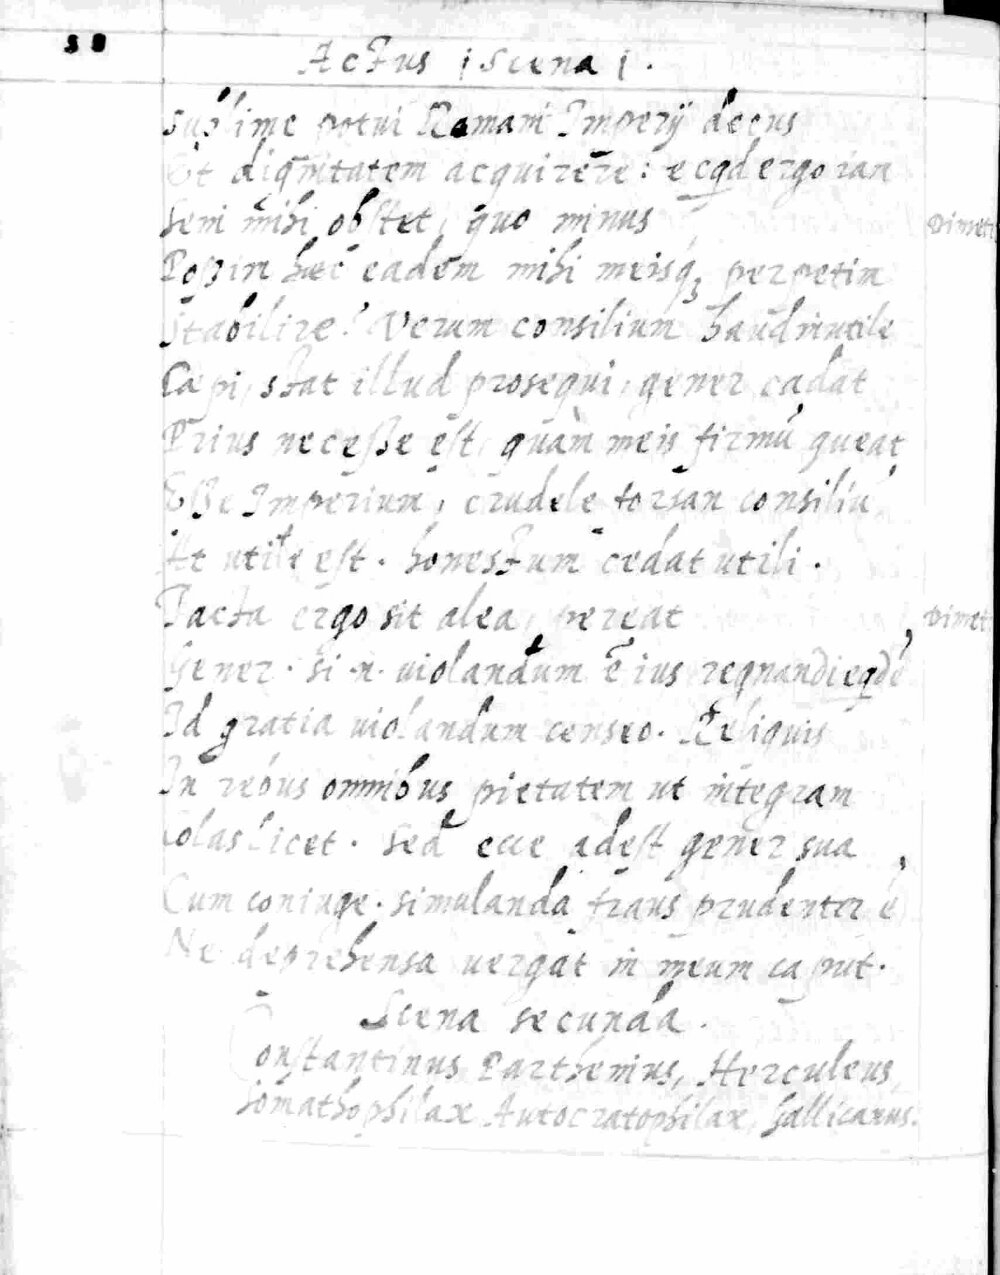 Actus i Scena i.
sublime potui Romani Imperij decus
Et dignitatem acquirere: ecqd ergo iam
Seni mihi obstet, quo minus
Dimet
Possim hæc eadem mihi meisq₃ perpetim
Stabilire? Verum consilium haud inutile
Cæpi, stat illud prosequi, gener cadat
Prius necesse est, quàm meis firmū queat
Esse Imperium, crudele forsan consiliū,
At utile est. honestum cedat utili.
Iacta ergo sit alea, pereat
Dimet
Gener. si .n. uiolandum ē ius regnandi eqdē
Id gratia uiolandum censeo. Reliquis
In rebus omnibus pietatem ut integram
Colas licet. Sed ecce adest gener sua
Cum coniuge. simulanda fraus prudenter ē
Ne deprehensa uergat in meum caput.
Scena secunda.
Constantinus Parthenius, Herculeus,
Somathophilax Autocratophilax, Gallicanus.